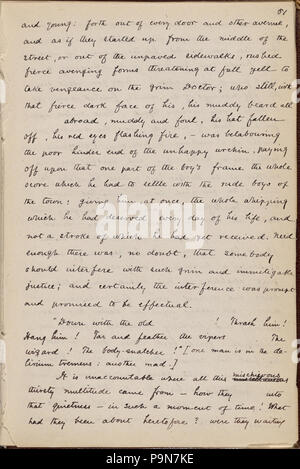 81
and young: forth out of every door and other avenue,
and as if they started up from the middle of the
street, or out of the unpaved sidewalks, rushed
fierce avenging forms threatening at full yell to
take vengeance on the grim Doctor; who still, with
that fierce dark face of his, his muddy beard all
abroad, muddy and foul, his hat fallen
off, his red eyes flashing fire, – was belabouring
the poor hinder end of the unhappy urchin, paying
off upon that one part of the boy's frame the whole
score which he had to settle with the rude boys of
the town: giving him, at once, the whole whipping
which he had deserved every day of his life, and
not a stroke of which he had yet received. Need
enough there was, no doubt, that somebody
should interfere with such grim and immitigable
justice; and certainly the interference was prompt
and promised to be effectual.
"Down with the old ! Thrash him!
Hang him! Tar and feather the vipers The
wizard! The body-snatcher!" [one man is in the de-
lirium tremens: another mad.]
It is unaccountable where all this mischievous
thirsty multitude came from – how they into
that quietness – in such a moment of time! What
had they been about heretofore? were they waiting
alamy
alamy stock photo
P9N7KE
www.alamy.com